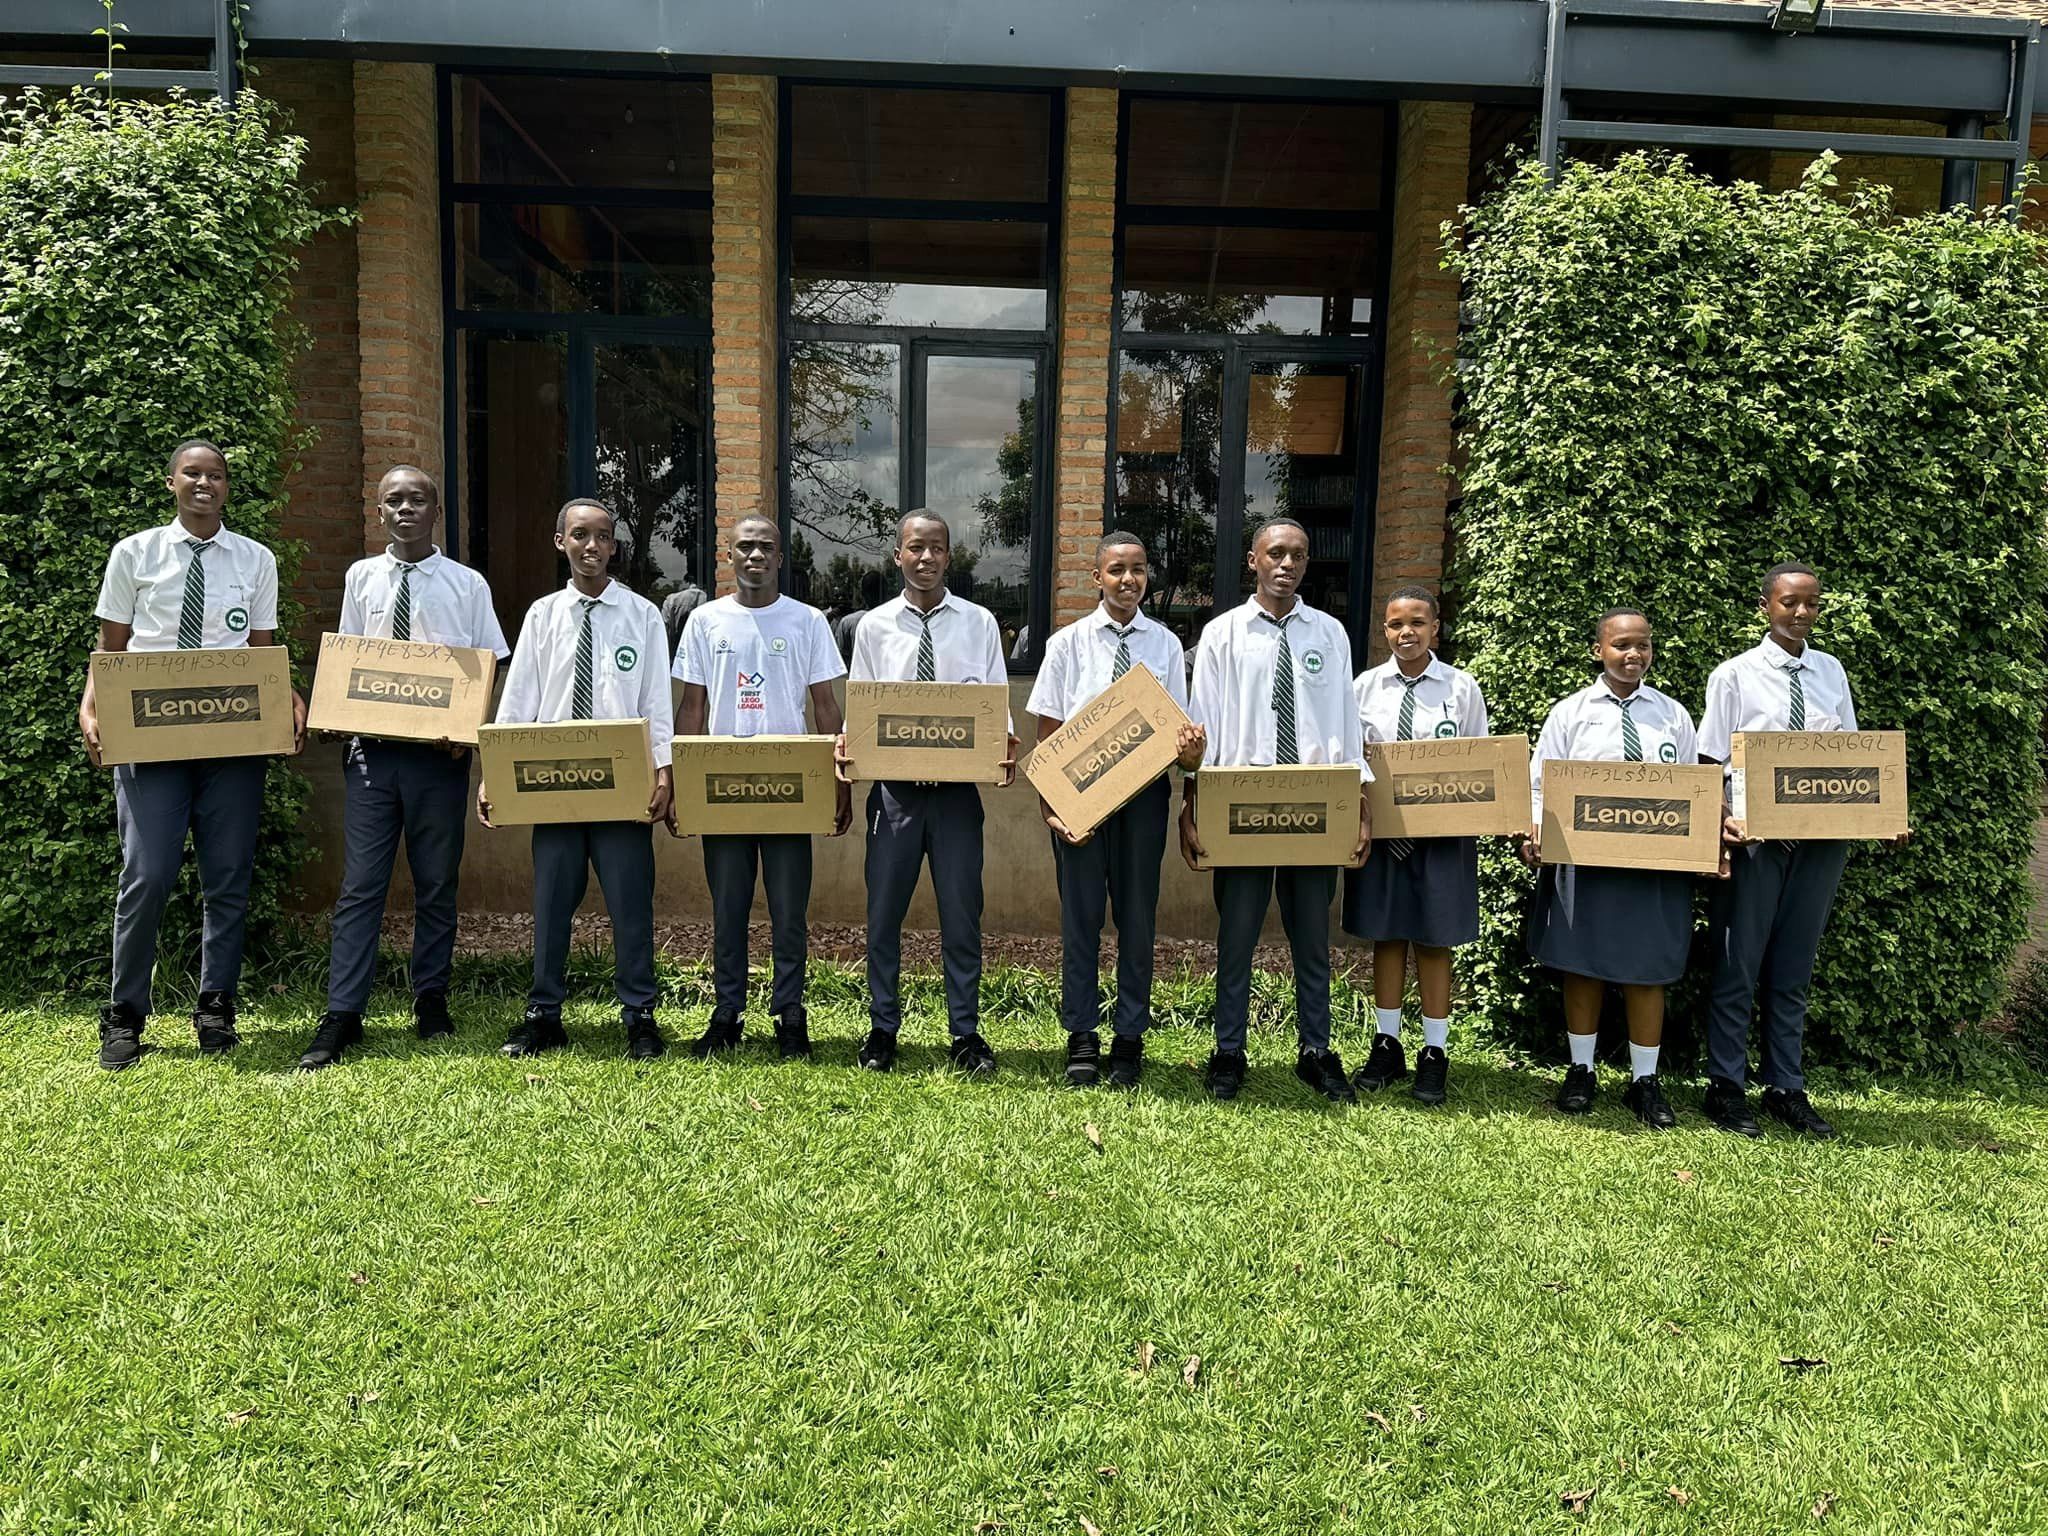 S/N: PF49H32Q
10
Lenovo
S/N: PF4E83X7
9
Lenovo
S/N: PF4KSCDN
2
Lenovo
FIRST
LEGO
LEAGUE
S/N: PF3LQE48
4
Lenovo
S/N: PF49Z7XR
3
Lenovo
S/N: PF4KNE3C
8
Lenovo
6
Lenovo
1
Lenovo
S/N: PF3L5SDA
7
Lenovo
S/N: PF3RQ6GL
5
Lenovo